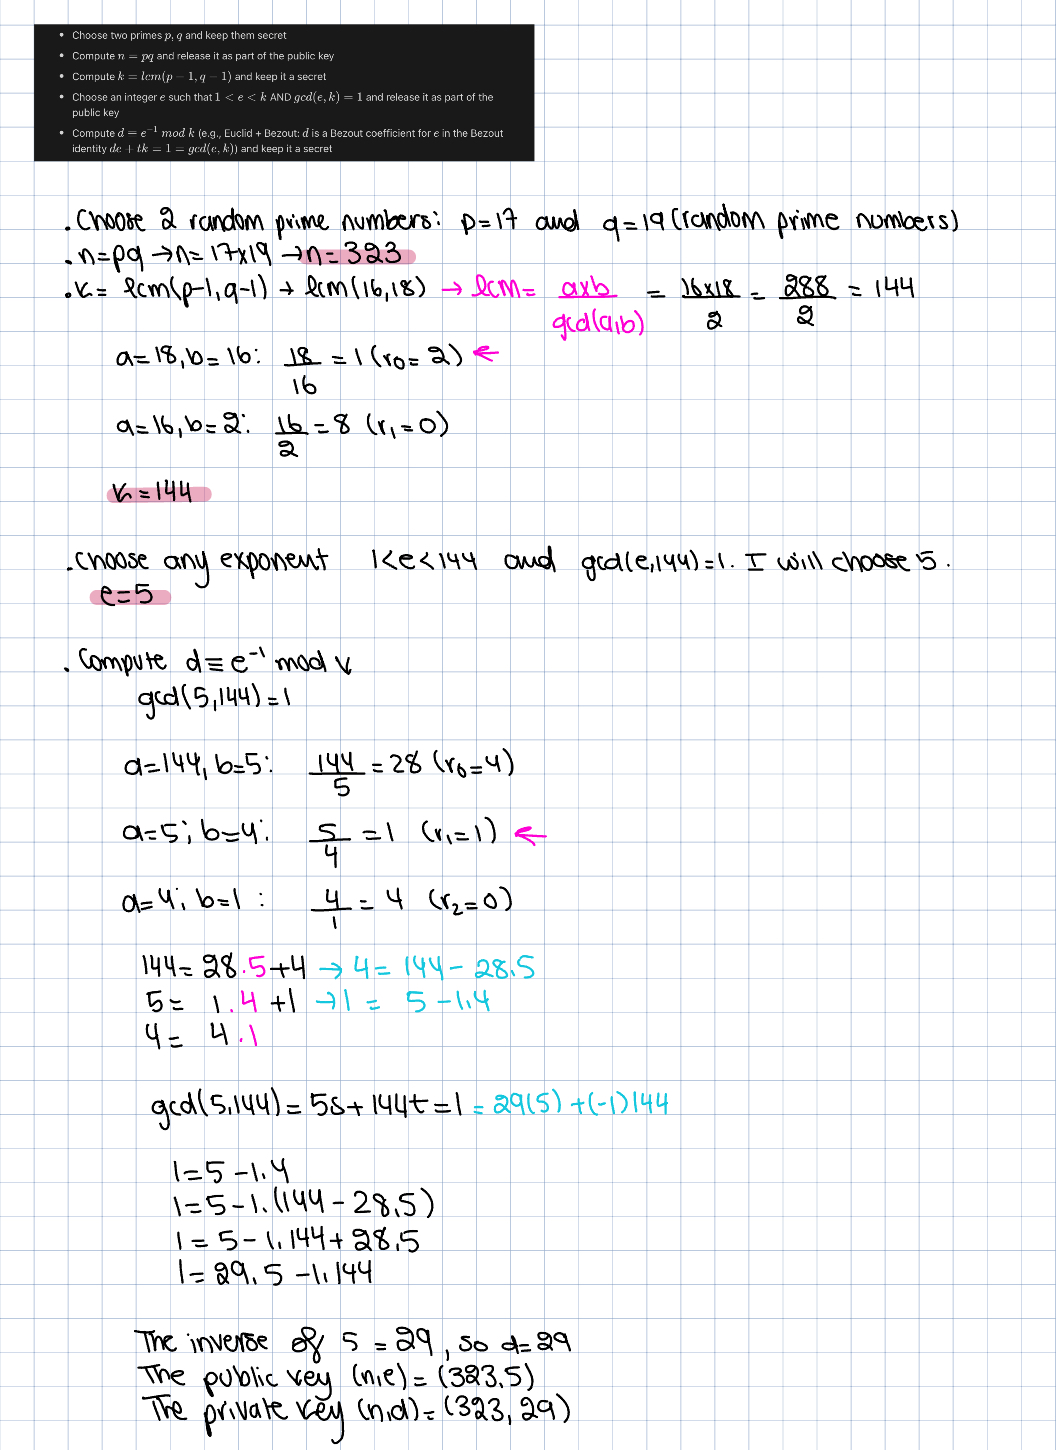 • Choose two primes p, q and keep them secret
• Compute n = pq and release it as part of the public key
• Compute k = lcm(p − 1, q − 1) and keep it a secret
• Choose an integer e such that 1 < e < k AND gcd(e, k) = 1 and release it as part of the
public key
• Compute d = e⁻¹ mod k (e.g., Euclid + Bezout: d is a Bezout coefficient for e in the Bezout
identity de + tk = 1 = gcd(e, k)) and keep it a secret
. Choose 2 random prime numbers: p=17 and q=19 (random prime numbers)
. n=pq → n=17×19 → n=323
. k= lcm(p-1,q-1) → lcm(16,18) → lcm= a×b/gcd(a,b) = 16×18/2 = 288/2 = 144
a=18, b=16: 18/16 = 1 (r₀=2) ←
a=16, b=2: 16/2 = 8 (r₁=0)
k=144
. Choose any exponent 1<e<144 and gcd(e,144)=1. I will choose 5.
e=5
. Compute d≡e⁻¹ mod k
gcd(5,144)=1
a=144, b=5: 144/5 = 28 (r₀=4)
a=5; b=4: 5/4 = 1 (r₁=1) ←
a=4; b=1: 4/1 = 4 (r₂=0)
144= 28.5+4 → 4= 144-28.5
5= 1.4+1 → 1= 5-1.4
4= 4.1
gcd(5,144)= 5s+144t=1 = 29(5)+(-1)144
1=5-1.4
1=5-1.(144-28.5)
1=5-1.144+28.5
1=29.5-1.144
The inverse of 5 = 29, so d=29
The public key (n,e)=(323,5)
The private key (n,d)=(323,29)